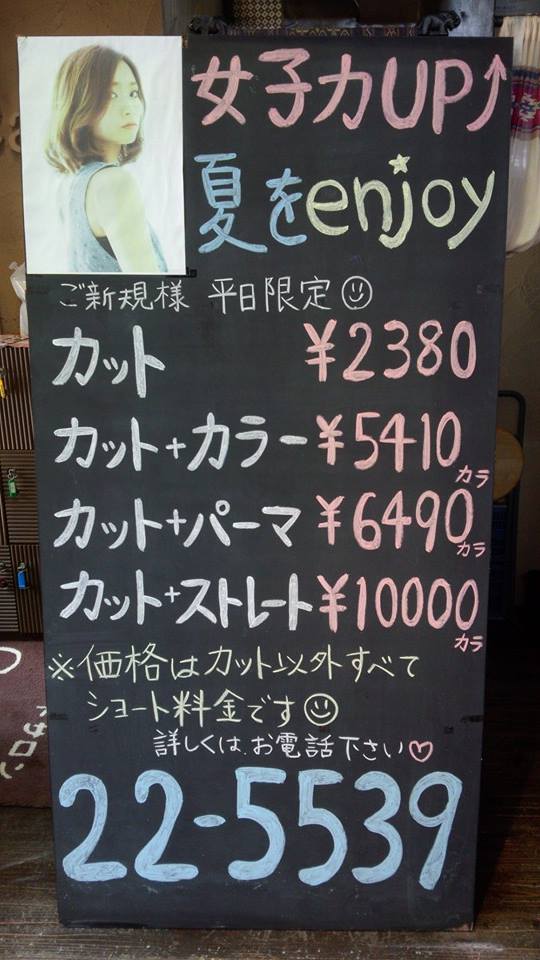 女子力UP↑
夏をenjoy
ご新規様 平日限定
カット ¥2380
カット+カラー ¥5410
カラ
カット+パーマ ¥6490
カラ
カット+ストレート ¥10000
カラ
※価格はカット以外すべて
ショート料金です
詳しくは、お電話下さい♡
22-5539
サロン